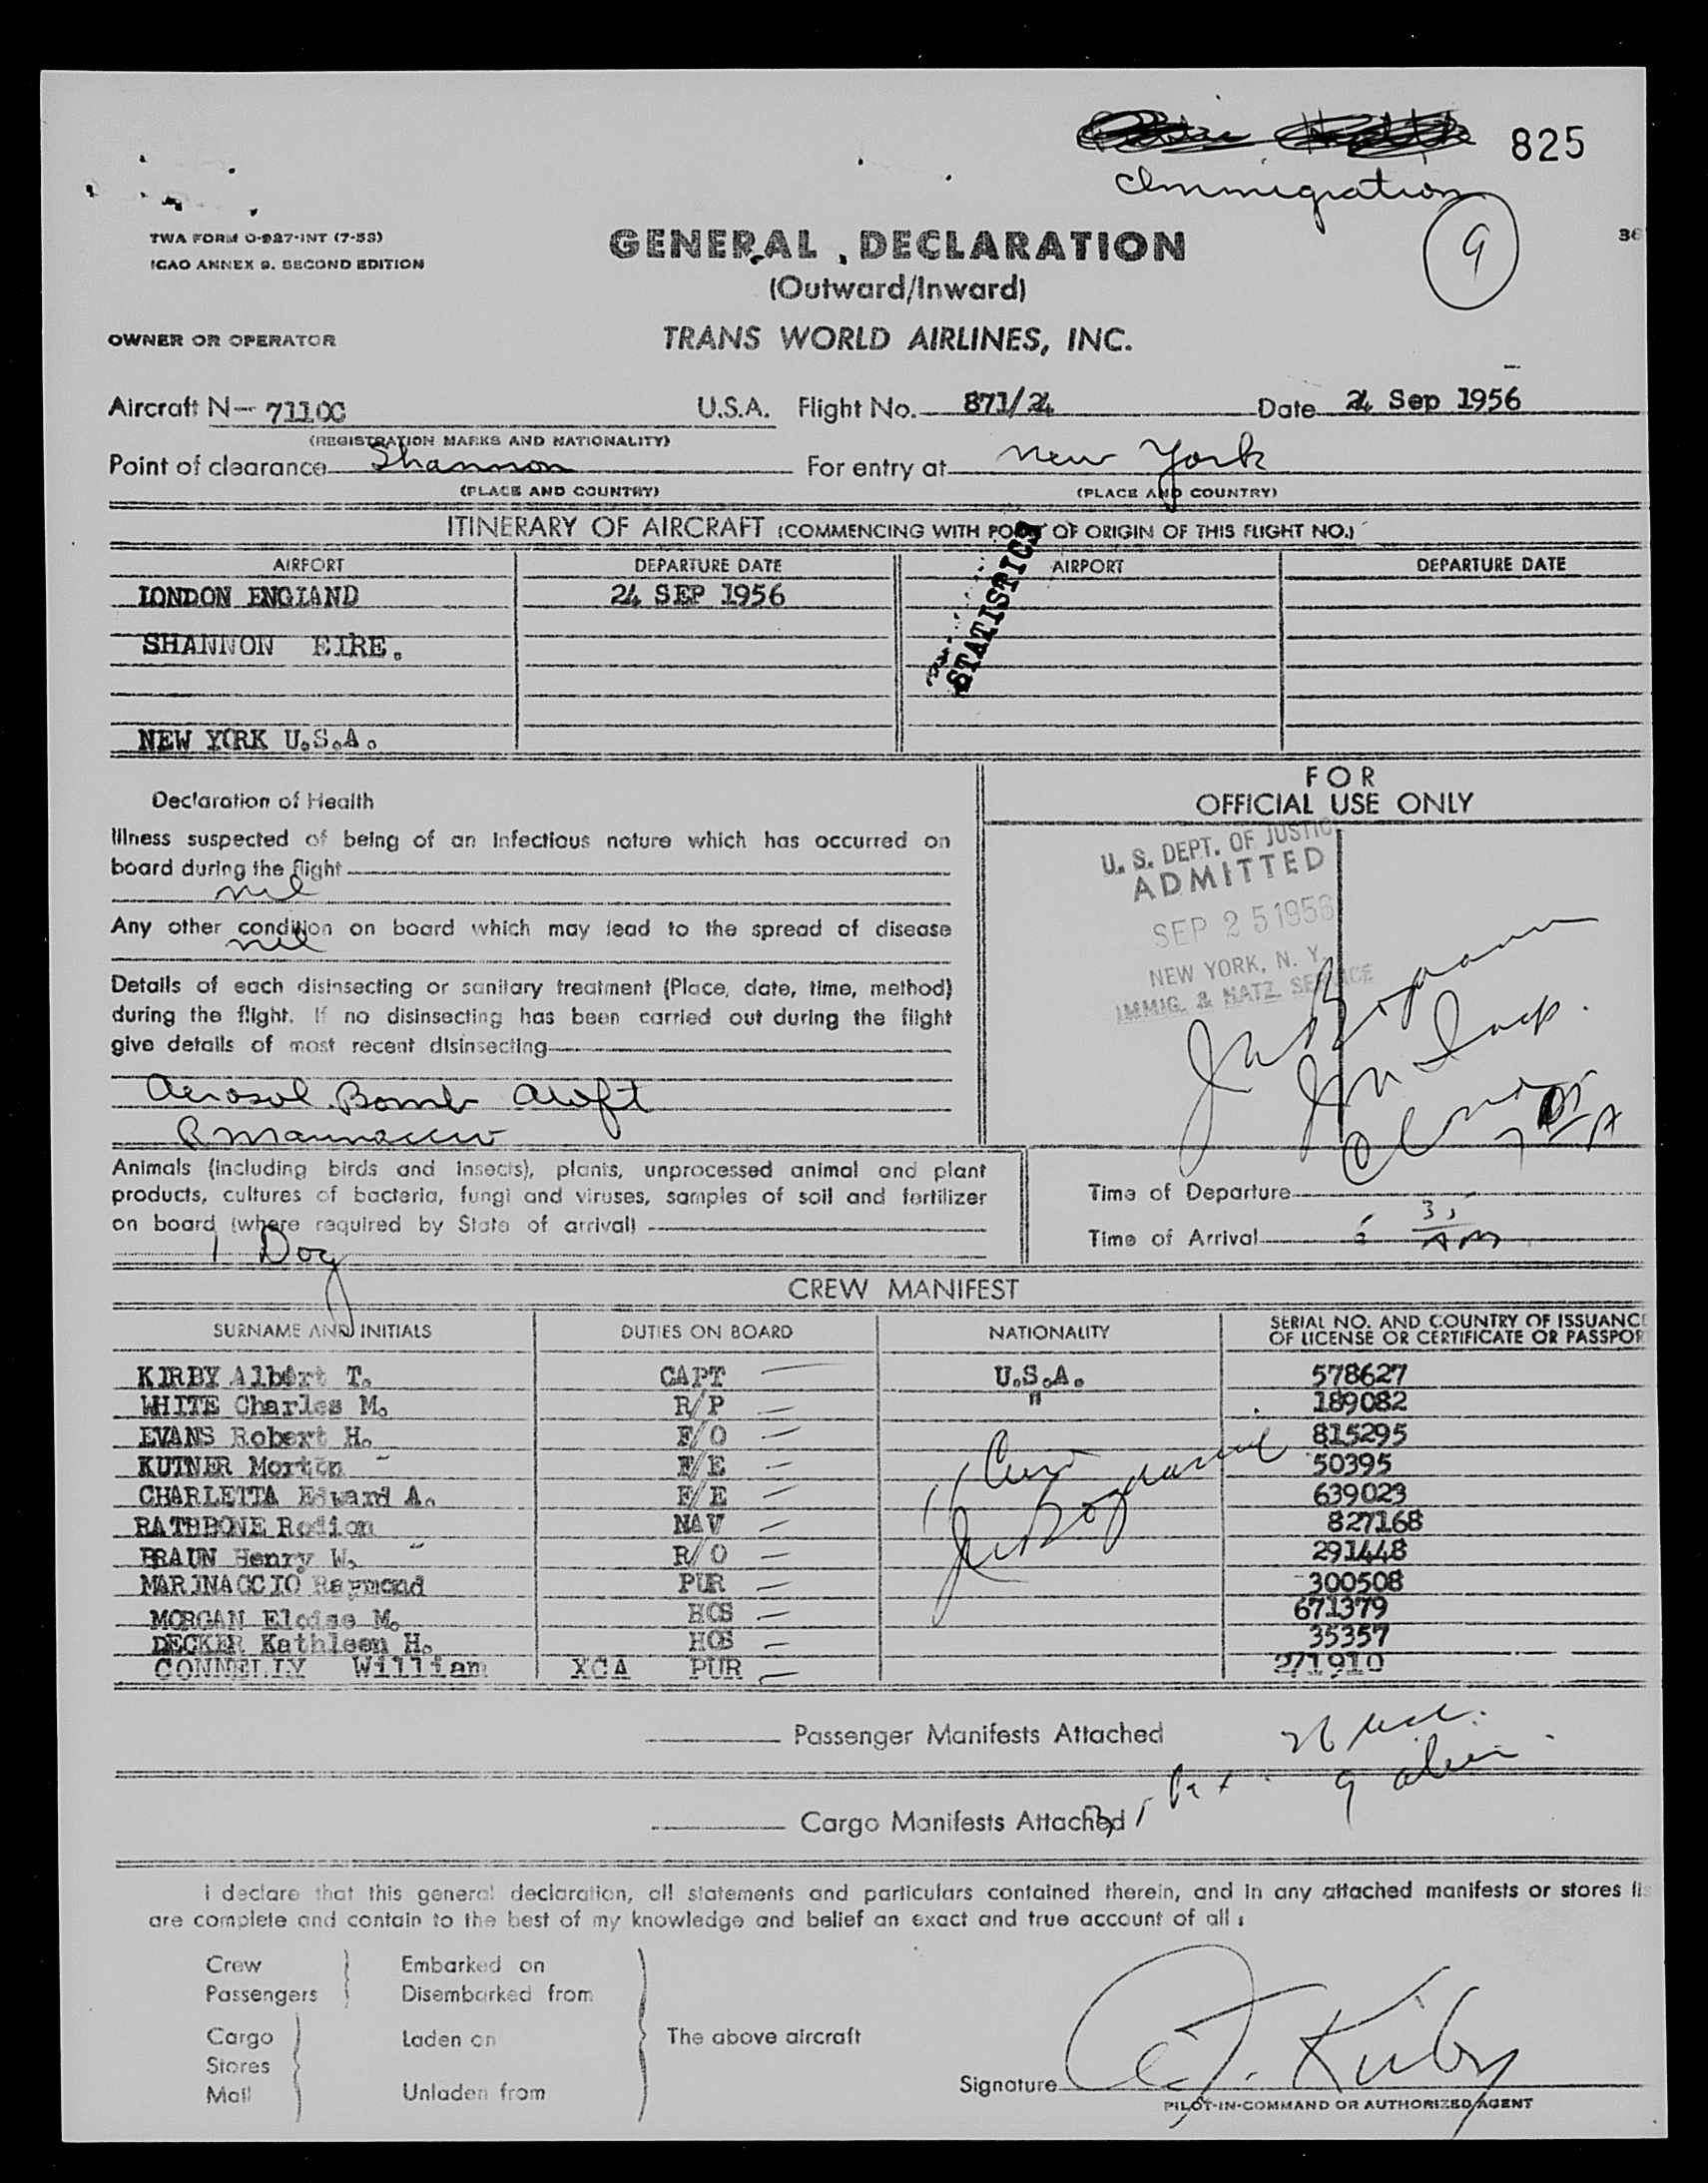 825
Immigration
TWA FORM O-927-INT (7-53)
ICAO ANNEX 9. SECOND EDITION
GENERAL DECLARATION
(Outward/Inward)
9
36
OWNER OR OPERATOR
TRANS WORLD AIRLINES, INC.
Aircraft N— 7110C U.S.A. Flight No. 871/24 Date 24 Sep 1956
(REGISTRATION MARKS AND NATIONALITY)
Point of clearance Shannon For entry at New York
(PLACE AND COUNTRY) (PLACE AND COUNTRY)
ITINERARY OF AIRCRAFT (COMMENCING WITH POINT OF ORIGIN OF THIS FLIGHT NO.)
STATISTICS
AIRPORT DEPARTURE DATE AIRPORT DEPARTURE DATE
LONDON ENGLAND 24 SEP 1956
SHANNON EIRE.
NEW YORK U.S.A.
Declaration of Health
Illness suspected of being of an infectious nature which has occurred on
board during the flight
nil
Any other condition on board which may lead to the spread of disease
nil
Details of each disinsecting or sanitary treatment (Place, date, time, method)
during the flight. If no disinsecting has been carried out during the flight
give details of most recent disinsecting
Aerosol Bomb aloft
FOR
OFFICIAL USE ONLY
U. S. DEPT. OF JUSTIC
ADMITTED
SEP 25 1956
NEW YORK, N. Y.
IMMIG. & NATZ. SERVICE
Animals (including birds and insects), plants, unprocessed animal and plant
products, cultures of bacteria, fungi and viruses, samples of soil and fertilizer
on board (where required by State of arrival)
1 Dog
Time of Departure
Time of Arrival AM
CREW MANIFEST
SURNAME AND INITIALS DUTIES ON BOARD NATIONALITY SERIAL NO. AND COUNTRY OF ISSUANCE
OF LICENSE OR CERTIFICATE OR PASSPOR
KIRBY Albert T. CAPT U.S.A. 578627
WHITE Charles M. R/P " 189082
EVANS Robert H. F/O 815295
KUTNER Morton F/E 50395
CHARLETTA Edward A. F/E 639023
RATHBONE Rodion NAV 827168
BRAUN Henry W. R/O 291448
MARINACCIO Raymond PUR 300508
MORGAN Eloise M. HOS 671379
DECKER Kathleen H. HOS 35357
CONNELLY William XCA PUR 271910
Passenger Manifests Attached
Cargo Manifests Attached
I declare that this general declaration, all statements and particulars contained therein, and in any attached manifests or stores lis
are complete and contain to the best of my knowledge and belief an exact and true account of all :
Crew Embarked on
Passengers Disembarked from
Cargo Laden on The above aircraft
Stores
Mail Unladen from
Signature A. T. Kirby
PILOT-IN-COMMAND OR AUTHORIZED AGENT